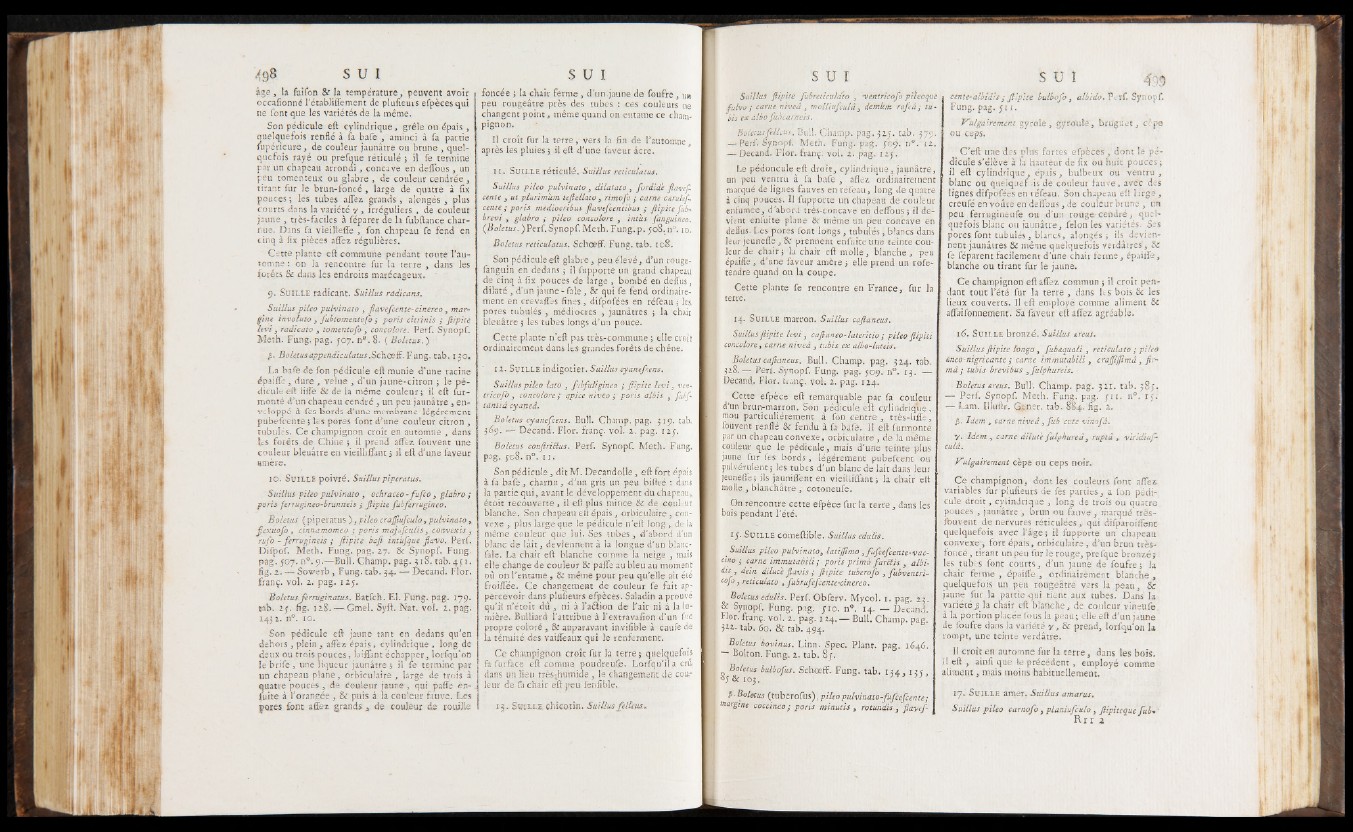 498 S U I
âge, la ſaiſon & la température, peuvent avoir
occaſionné l'établiſſement de pluſieurs eſpèces qui
ne ſont que les variétés de la même.
Son pédicule eſt cylindrique, grêle ou épais,
quelquefois renflé à ſa baſe, aminci à ſa partie
ſupérieure, de couleur jaunâtre ou brune, quel-
quefois rayé ou preſque réticulé; il ſe termine
par un chapeau arrondi, concave en deſſous, un
peu tomenteux ou glabre, de couleur cendrée,
tirant ſur le brun-foncé, large de quatre à ſix
pouces; les tubes aſſez grands, alongés, plus
courts dans la variété γ, irréguliers, de couleur
jaune, très-faciles à ſéparer de la ſubſtance char-
nue. Dans ſa vieilleſſe, ſon chapeau ſe fend en
cinq à ſix pièces aſſez régulières.
Cette plante eſt commune pendant toute l'au-
tomne: on la rencontre ſur la terre, dans les
forêts & dans les endroits marécageux.
9. SUILLE radicant. Suillus radicans.
Suillus pileo pulvinato, flaveſcente-cinereo, mar-
gine involuto, ſubtomentoſo; poris citrinis; ſtipite
levi, radicato, tomentoſo, concolore. Perſ. Synopſ.
Meth. Fung. pag. 507. n°. 8. (Boletus.)
β. Boletus appendiculatus. Schœff. Fung. tab. 130.
La baſe de ſon pédicule eſt munie d'une racine
épaiſſe, dure, velue, d'un jaune-citron; le pé-
dicule eſt liſſe & de la même couleur; il eſt ſur-
monté d'un chapeau cendré, un peu jaunâtre, en-
veloppé à ſes bords d'une membrane légérement
pubeſcente; les pores ſont d'une couleur citron,
tubulés. Ce champignon croît en automne, dans
les forêts de Chine; il prend aſſez ſouvent une
couleur bleuâtre en vieilliſſant; il eſt d'une ſaveur
amère.
10. SUILLE poivré. Suillus piperatus.
Suillus pileo pulvinato, ochraceo-fuſco, glabro;
poris ferrugineo-brunneis; ſtipite ſubferrugineo.
Boletus (piperatus), pileo craſſiuſculo, pulvinato,
flexuoſo, cinnamomeo; poris majuſculis, convexis,
rufo-ferrugineis; ſtipite baſi intuſque flavo. Perſ.
Diſpoſ. Meth. Fung. pag. 27. & Synopſ. Fung.
pag. 507. n°. 9. — Bull. Champ. pag. 318. tab. 451.
fig. 2. — Sowerb, Fung. tab. 34. — Decand. Flor.
franç. vol. 2. pag. 125.
Boletus ferruginatus. Batſch. El. Fung. pag. 179.
tab. 25. fig. 128. — Gmel. Syſt. Nat. vol. 2. pag.
1432. n°. 10.
Son pédicule eſt jaune tant en dedans qu'en
dehors, plein, aſſez épais, cylindrique, long de
deux ou trois pouces, laiſſant échapper, lorſqu'on
le briſe, une liqueur jaunâtre; il ſe termine par
un chapeau plane, orbiculaire, large de trois à
quatre pouces, de couleur jaune, qui paſſe en-
ſuite à l'orangée, & puis à la couleur fauve. Les
pores ſont aſſez grands, de couleur de rouille
S U I
foncée; la chair ferme, d'un jaune de ſoufre, un
peu rougeâtre près des tubes: ces couleurs ne
changent point, même quand on entame ce cham-
pignon.
Il croît ſur la terre, vers la fin de l'automne,
après les pluies; il eſt d'une ſaveur âcre.
11. SUILLE réticulé. Suillus reticulatus.
Suillus pileo pulvinato, dilatato, ſordidè flaveſ-
cente, ut plurimùm teſſellato, rimoſo; carne cæruleſ-
cente; poris mediocribus flaveſcentibus; ſtipite ſub-
brevi, glabro; pileo concolore, intùs ſanguineo.
(Boletus.) Perſ. Synopſ. Meth. Fung. p. 508. n°. 10.
Boletus reticulatus. Schœff. Fung. tab. 108.
Son pédicule eſt glabre, peu élevé, d'un rouge-
ſanguin en dedans; il ſupporte un grand chapeau
de cinq à ſix pouces de large, bombé en deſſus,
dilaté, d'un jaune-ſale, & qui ſe fend ordinaire-
ment en crevaſſes fines, diſpoſées en réſeau; les
pores tubulés, médiocres, jaunâtres; la chair
bleuâtre; les tubes longs d'un pouce.
Cette plante n'eſt pas très-commune; elle croît
ordinairement dans les grandes forêts de chêne.
12. SUILLE indigotier. Suillus cyaneſcens.
Suillus pileo lato, ſubfuligineo; ſtipite levi, ven-
tricoſo, concolore; apice niveo; poris albis, ſubſ-
tantiâ cyaneâ.
Boletus cyaneſcens. Bull. Champ. pag. 319. tab.
369. — Decand. Flor. franç. vol. 2. pag. 125.
Boletus conſtrictus. Perſ. Synopſ. Meth. Fung.
pag. 508. n°. 11.
Son pédicule, dit M. Decandolle, eſt fort épais
à ſa baſe, charnu, d'un gris un peu biſtré: dans
la partie qui, avant le développement du chapeau,
étoit recouverte, il eſt plus mince & de couleur
blanche. Son chapeau eſt épais, orbiculaire, con-
vexe, plus large que le pédicule n'eſt long, de la
même couleur que lui. Ses tubes, d'abord d'un
blanc de lait, deviennent à la longue d'un blanc-
ſale. La chair eſt blanche comme la neige, mais
elle change de couleur & paſſe au bleu au moment
où on l'entame, & même pour peu qu'elle ait été
froiſſée. Ce changement de couleur ſe fait ap-
percevoir dans pluſieurs eſpèces. Saladin a prouvé
qu'il n'étoit dû, ni à l'action de l'air ni à la lu-
mière. Bulliard l'attribue à l'extravaſion d'un ſuc
propre coloré, & auparavant inviſible à cauſe de
la ténuité des vaiſſeaux qui le renferment.
Ce champignon croît ſur la terre; quelquefois
ſa ſurface eſt comme poudreuſe. Lorſqu'il a crû
dans un lieu très-humide, le changement de cou-
leur de ſa chair eſt peu ſenſible.
13. SUILLE chicotin. Suillus felleus.
S U I
Suillus ſtipite ſubreticulato, ventricoſo pileoque
fulvo; carne niveâ, molliuſculâ, demùm roſeâ; tu-
bis ex albo ſubcarneis.
Boletus felleus. Bull. Champ. pag. 325. tab. 379.
— Perſ. Synopſ. Meth. Fung. pag. 509. n°. 12.
— Decand. Flor. franç. vol. 2. pag. 125.
Le pédoncule eſt droit, cylindrique, jaunâtre,
un peu ventru à ſa baſe, aſſez ordinairement
marqué de lignes fauves en réſeau, long de quatre
à cinq pouces. Il ſupporte un chapeau de couleur
enfumée, d'abord très-concave en deſſous; il de-
vient enſuite plane & même un peu concave en
deſſus. Les pores ſont longs, tubulés, blancs dans
leur jeuneſſe, & prennent enſuite une teinte cou-
leur de chair; la chair eſt molle, blanche, peu
épaiſſe, d'une ſaveur amère; elle prend un roſe-
tendre quand on la coupe.
Cette plante ſe rencontre en France, ſur la
terre.
14. SUILLE marron. Suillus caſtaneus.
Suillus ſtipite levi, caſtaneo-lateritio; pileo ſtipiti
concolore, carne niveâ, tubis ex albo-luteis.
Boletus caſtaneus. Bull. Champ. pag. 324. tab.
328. — Perſ. Synopſ. Fung. pag. 509. n°. 13. —
Decand. Flor. franç. vol. 2. pag. 124.
Cette eſpèce eſt remarquable par ſa couleur
d'un brun-marron. Son pédicule eſt cylindrique,
mou particuliérement à ſon centre, très-liſſe,
ſouvent renflé & fendu à ſa baſe. Il eſt ſurmonté
par un chapeau convexe, orbiculaire, de la même
couleur que le pédicule, mais d'une teinte plus
jaune ſur les bords, légérement pubeſcent ou
pulvérulent; les tubes d'un blanc de lait dans leur
jeuneſſe; ils jauniſſent en vieilliſſant; la chair eſt
molle, blanchâtre, cotoneuſe.
On rencontre cette eſpèce ſur la terre, dans les
bois pendant l'été.
15. SUILLE comeſtible. Suillus edulis.
Suillus pileo pulvinato, latiſſimo, fuſceſcente-vac-
cino; carne immutabili; poris primò farctis, albi-
dis, dein dilutè flavis; ſtipite tuberoſo, ſubventri-
coſo, reticulato, ſubrufeſcente-cinereo.
Boletus edulis. Perſ. Obſerv. Mycol. 1. pag. 23.
& Synopſ. Fung. pag. 510. n°. 14. — Decand.
Flor. franç. vol. 2. pag. 124. — Bull. Champ. pag.
322. tab. 60. & tab. 494.
Boletus bovinus. Linn. Spec. Plant. pag. 1646.
— Bolton. Fung. 2. tab. 85.
Boletus bulboſus. Schœff. Fung. tab. 134, 135,
85 & 103.
β. Boletus (tuberoſus) pileo pulvinato-fuſceſcente;
margine coccineo; poris minutis, rotundis, flaveſ-
S U I 499
cente-albidis; ſtipite bulboſo, albido. Perſ. Synopſ.
Fung. pag. 511.
Vulgairement gyrole, gyroule, bruguet, cèpe
ou ceps.
C'eſt une des plus fortes eſpèces, dont le pé-
dicule s'élève à la hauteur de ſix ou huit pouces;
il eſt cylindrique, épais, bulbeux ou ventru,
blanc ou quelquefois de couleur fauve, avec des
lignes diſpoſées en réſeau. Son chapeau eſt large,
creuſé en voûte en deſſous, de couleur brune, un
peu ferrugineuſe ou d'un rouge-cendré, quel-
quefois blanc ou jaunâtre, ſelon les variétés. Ses
pores ſont tubulés, blancs, alongés; ils devien-
nent jaunâtres & même quelquefois verdâtres, &
ſe ſéparent facilement d'une chair ferme, épaiſſe,
blanche ou tirant ſur le jaune.
Ce champignon eſt aſſez commun; il croît pen-
dant tout l'été ſur la terre, dans les bois & les
lieux couverts. Il eſt employé comme aliment &
aſſaiſonnement. Sa ſaveur eſt aſſez agréable.
16. SUILLE bronzé. Suillus æreus.
Suillus ſtipite longo, ſubæquali, reticulato; pileo
æneo-nigricante; carne immutabili, craſſiſſimâ, fir-
mâ; tubis brevibus, ſulphureis.
Boletus æreus. Bull. Champ. pag. 321. tab. 385.
— Perſ. Synopſ. Meth. Fung. pag. 511. n°. 15.
— Lam. Illuſtr. Gener. tab. 884. fig. 2.
β. Idem, carne niveâ, ſub cute vinoſâ.
γ. Idem, carne dilutè ſulphureâ, ruptâ, viridiuſ-
culâ.
Vulgairement cèpe ou ceps noir.
Ce champignon, dont les couleurs ſont aſſez
variables ſur pluſieurs de ſes parties, a ſon pédi-
cule droit, cylindrique, long de trois ou quatre
pouces, jaunâtre, brun ou fauve, marqué très-
ſouvent de nervures réticulées, qui diſparoiſſent
quelquefois avec l'âge; il ſupporte un chapeau
convexe, fort épais, orbiculaire, d'un brun très-
foncé, tirant un peu ſur le rouge, preſque bronzé;
les tubes ſont courts, d'un jaune de ſoufre; la
chair ferme, épaiſſe, ordinairement blanche,
quelquefois un peu rougeâtre vers la peau, &
jaune ſur la partie qui tient aux tubes. Dans la
variété β la chair eſt blanche, de couleur vineuſe
à la portion placée ſous la peau; elle eſt d'un jaune
de ſoufre dans la variété γ, & prend, lorſqu'on la
rompt, une teinte verdâtre.
Il croît en automne ſur la terre, dans les bois.
Il eſt, ainſi que le précédent, employé comme
aliment, mais moins habituellement.
17. SUILLE amer. Suillus amarus.
Suillus pileo carnoſo, planiuſculo, ſtipiteque ſub-
Rrr 2